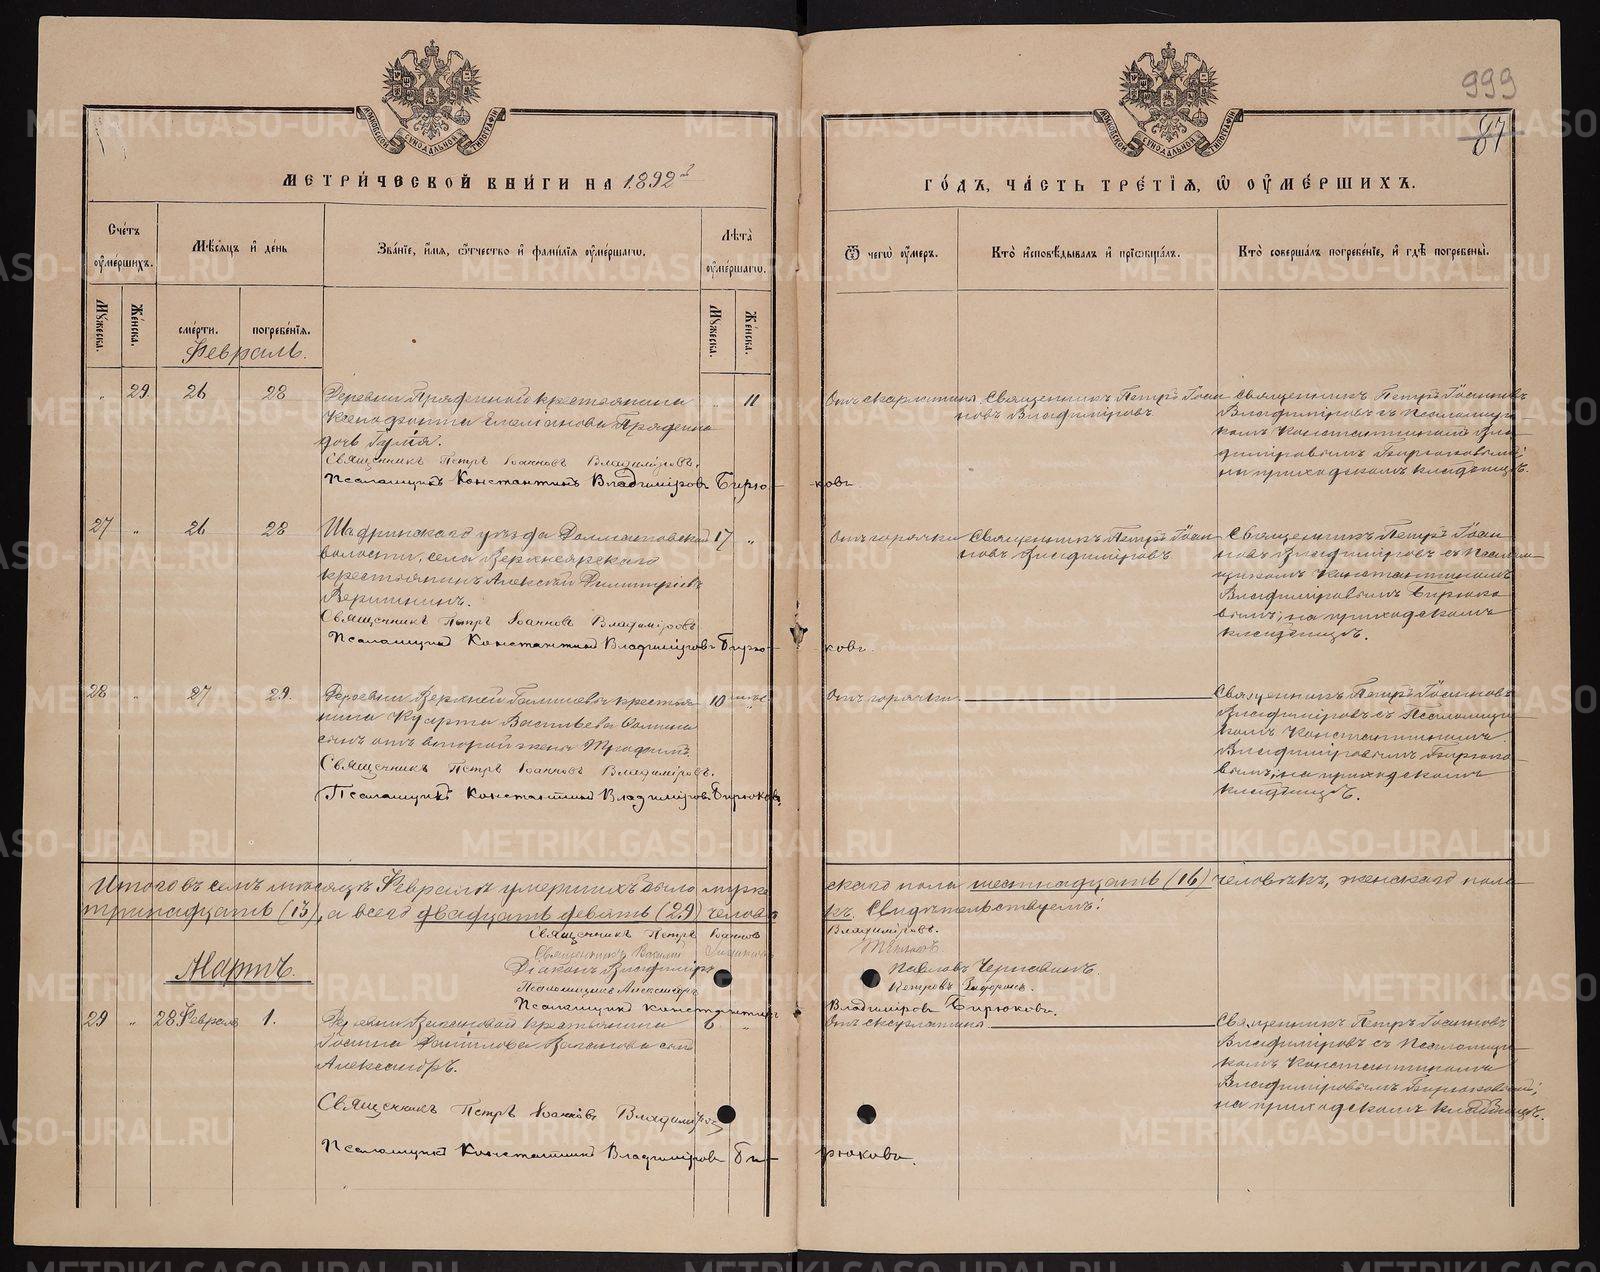 999
87
МЕТРИ́ЧЕСКОЙ КНИ́ГИ НА 1892й
ГО́ДЪ, ЧА́СТЬ ТРЕ́ТЇѦ, Ѡ҆ ОУ҆МЕ́РШИХЪ.
Сче́тъ оу҆ме́ршихъ.
Мѣ́сѧцъ и҆ де́нь
Зва́нїе, и҆́мѧ, ѻ҆́тчество и҆ фами́лїѧ оу҆ме́ршагѡ.
Лѣ́та оу҆ме́ршагѡ.
Ѿ чегѡ̀ оу҆́меръ.
Кто̀ и҆сповѣ́дывалъ и҆ прїѡбща́лъ.
Кто̀ соверша́лъ погребе́нїе, и҆ гдѣ̀ погребены̀.
Мꙋ́жеска.
Же́нска.
сме́рти.
погребе́нїѧ.
Мꙋ́жеска.
Же́нска.
Февраль.
„ 29 26 28
Деревни Пряденной крестьянина
Ксенофонта
дочь
Священникъ Петръ Іоанновъ Владиміровъ.
Псаломщикъ Константинъ Владиміровъ Бирюковъ
„ 11
Отъ скарлатины
Священникъ Петръ Іоанновъ Владиміровъ
Священникъ Петръ Іоанновъ
Владиміровъ съ Псаломщи-
комъ Константиномъ Вла-
диміровымъ Бирюковымъ;
на приходскомъ кладбищѣ.
27 „ 26 28
Шадринскаго уѣзда Далматовской
волости, села Верхнеярскаго
крестьянинъ Алексѣй Димитріевъ
Вершининъ.
Священникъ Петръ Іоанновъ Владиміровъ
Псаломщикъ Константинъ Владиміровъ Бирюковъ.
17 „
Отъ горячки
Священникъ Петръ Іоан-
новъ Владиміровъ
Священникъ Петръ Іоан-
новъ Владиміровъ съ Псалом-
щикомъ Константиномъ
Владиміровымъ Бирюко-
вымъ; на приходскомъ
кладбищѣ.
28 „ 27 29
Деревни Верхней крестья-
нина Васильева
сынъ отъ второй жены Трофимъ
Священникъ Петръ Іоанновъ Владиміровъ.
Псаломщикъ Константинъ Владиміровъ Бирюковъ
10 „
Отъ горячки
Священникъ Петръ Іоанновъ
Владиміровъ съ Псаломщи-
комъ Константиномъ
Владиміровымъ Бирюко-
вымъ; на приходскомъ
кладбищѣ.
Итого въ семъ мѣсяцѣ Февралѣ умершихъ было муже-
скаго пола шестнадцать (16) человѣкъ, женскаго пола
тринадцать (13), а всего двадцать девять (29) человѣ-
къ. Свидѣтельствуемъ:
Священникъ Петръ Іоанновъ Владиміровъ.
Священникъ
Діаконъ Владиміръ Павловъ
Псаломщикъ Александръ Петровъ
Псаломщикъ Константинъ Владиміровъ Бирюковъ.
Мартъ.
29 „ 28 Февраля 1.
Деревни крестьянина
Іоанна сынъ
Александръ.
Священникъ Петръ Іоанновъ Владиміровъ
Псаломщикъ Константинъ Владиміровъ Бирюковъ.
6 „
Отъ скарлатины
Священникъ Петръ Іоанновъ
Владиміровъ съ Псаломщи-
комъ Константиномъ
Владиміровымъ Бирюковымъ;
на приходскомъ кладбищѣ.
METRIKI.GASO-URAL.RU